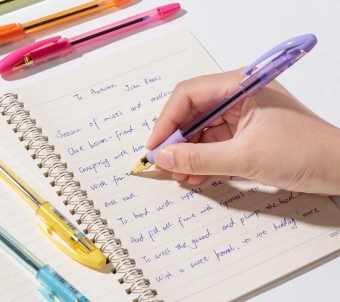 To Autumn John Keats
Season of mists and mellow
Close bosom-friend of th
Conspiring with him
With fruit
eves run
To bend with apples the
And fill all fruit with ripeness to
To swell the gourd, and plump the hazel
With a sweet kernel, to set budding more